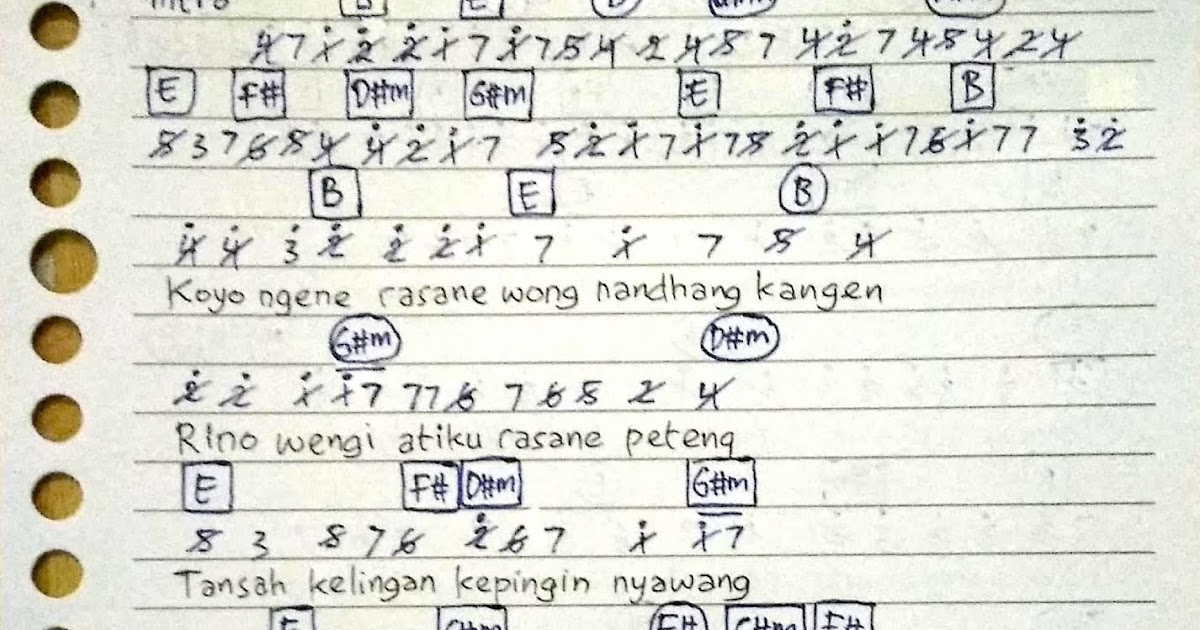 4 7 i 2 2 i 7 i 7 5 4 2 4 5 7 4 2 7 4 5 4 2 4
E F# D#m G#m E F# B
5 3 7 6 5 4 4 2 i 7 5 2 i 7 i 7 5 2 i i 7 6 i 7 7 3 2
B E B
4 4 3 2 2 2 i 7 i 7 5 4
Koyo ngene rasane wong nandhang kangen
G#m D#m
2 2 i i7 7 7 6 7 6 5 2 4
Rino wengi atiku rasane peteng
E F# D#m G#m
5 3 5 7 6 2 6 7 i i7
Tansah kelingan kepingin nyawang